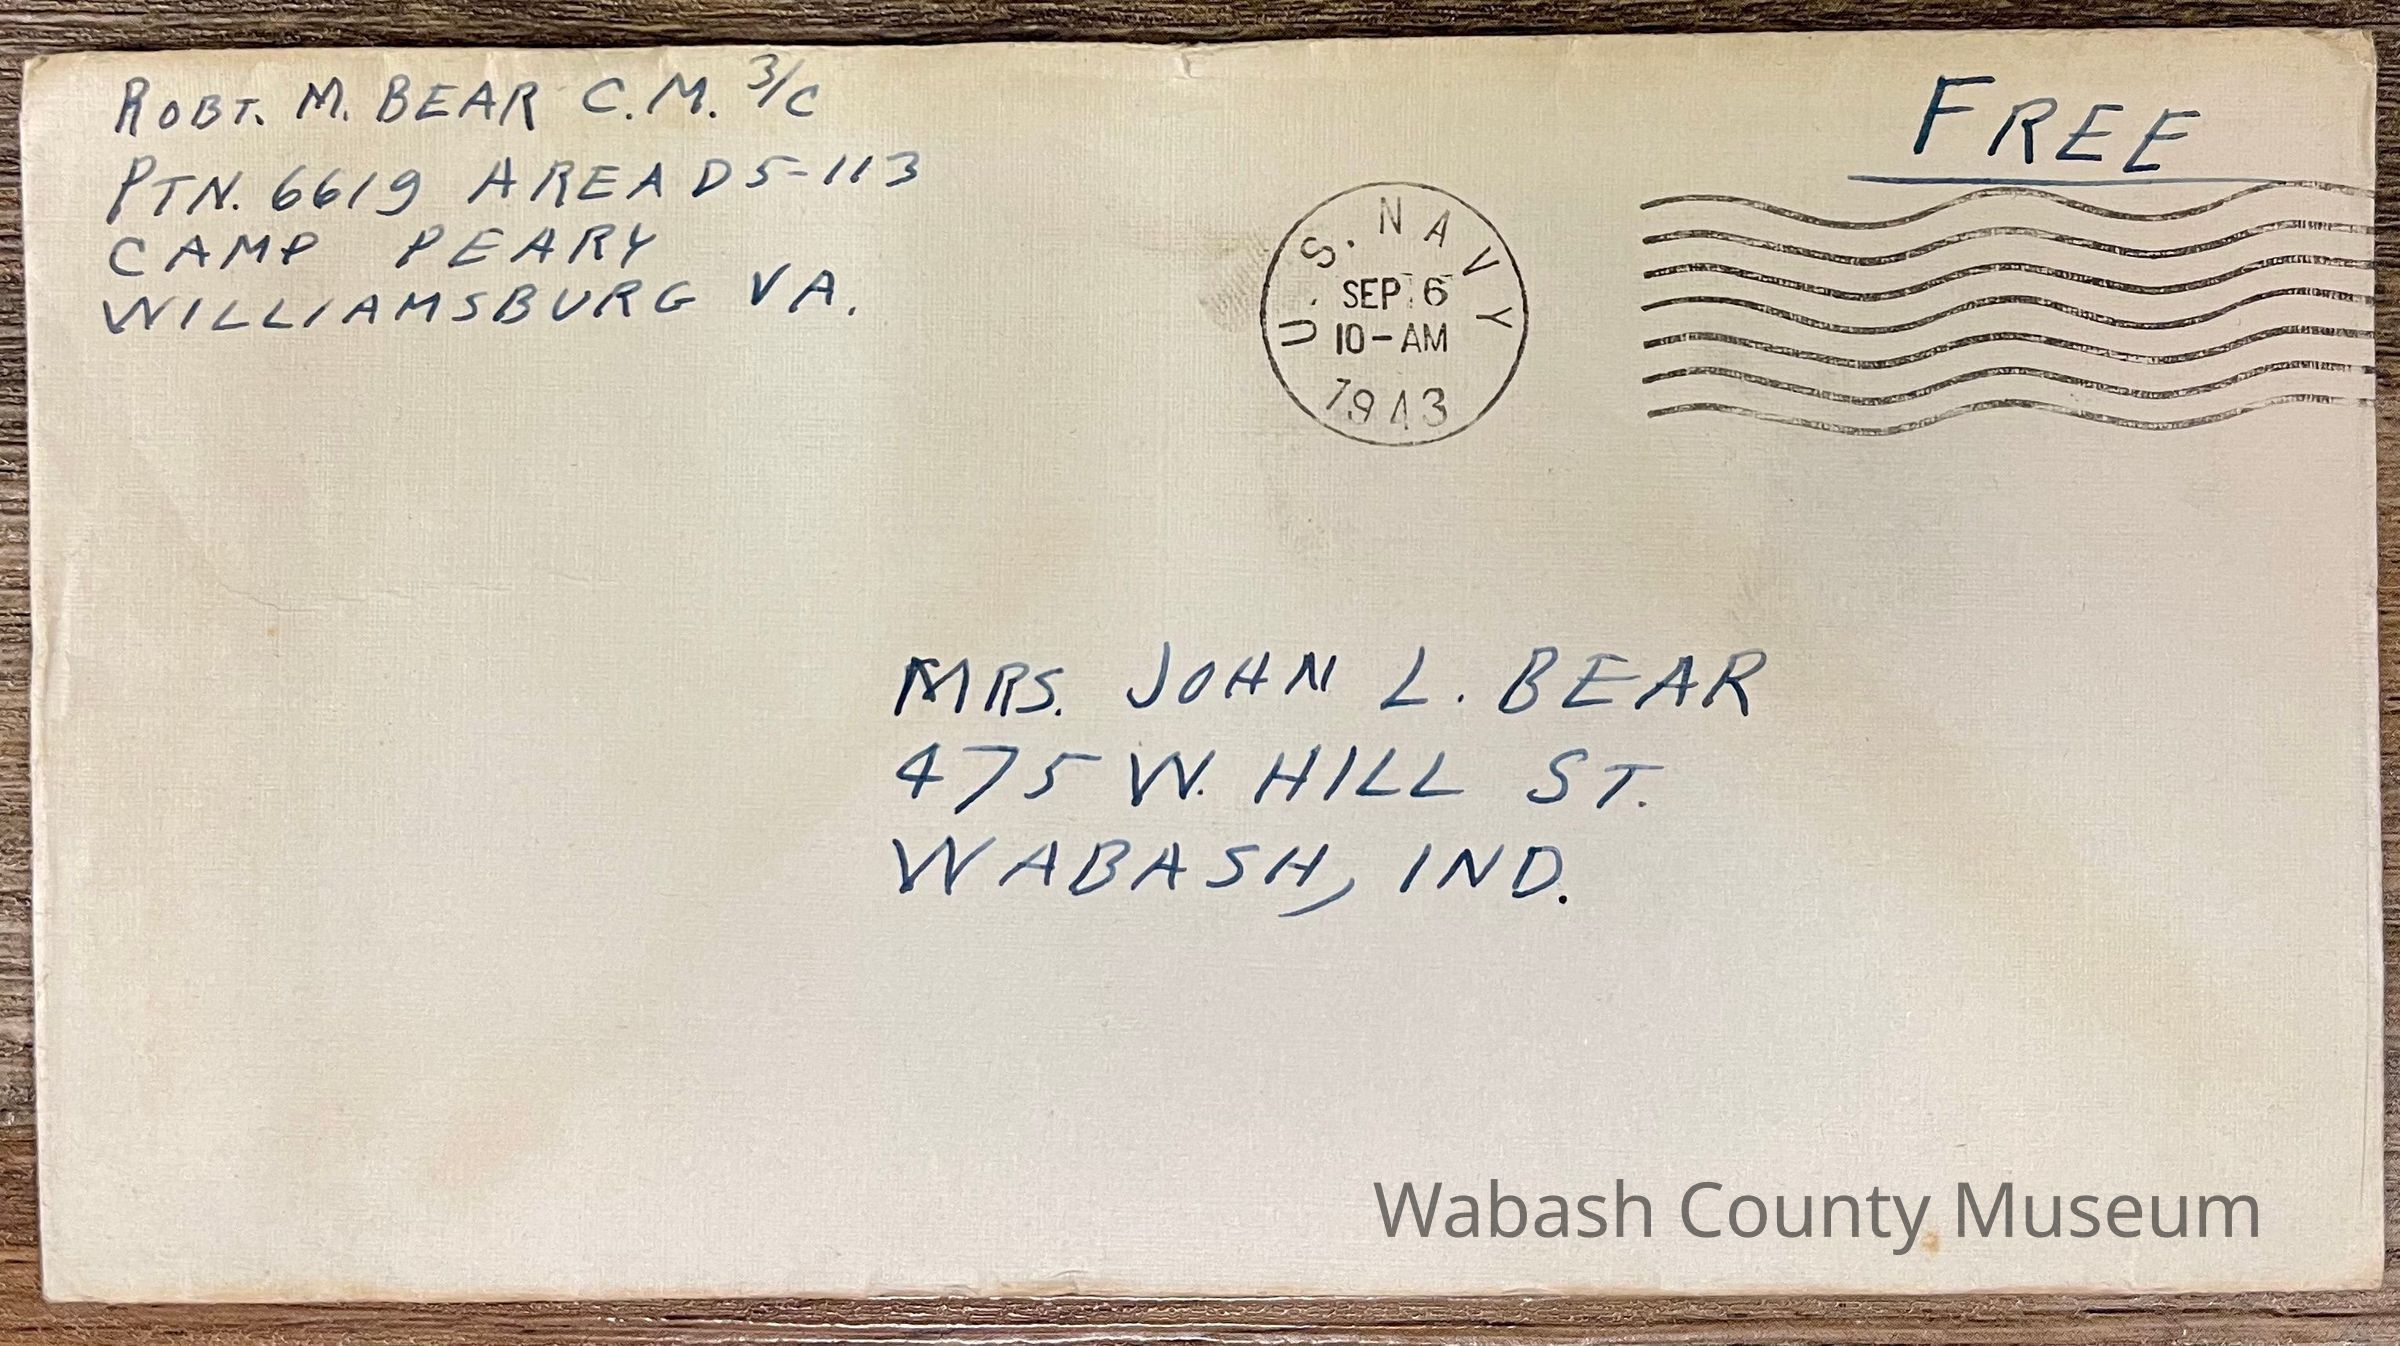 ROBT. M. BEAR C.M. 3/C
PTN. 6619 AREA D5-113
CAMP PEARY
WILLIAMSBURG VA.
FREE
U.S. NAVY
SEP 6
10-AM
1943
MRS. JOHN L. BEAR
475 W. HILL ST.
WABASH, IND.
Wabash County Museum